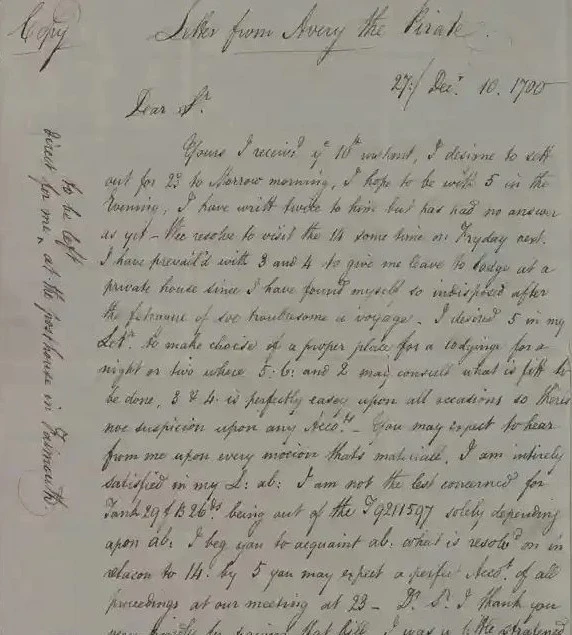 Copy
Letter from Avery the Pirate.
27:/ Decr. 10. 1700
Dear Sr.
Yours I receiv'd ye 10th instant, I designe to sett
out for 23 to Morrow morning, I hope to be with 5 in the
Evening, I have writt twice to him but has had no answer
as yet - Wee resolve to visit the 14 some time on Fryday next.
I have prevail'd with 3 and 4 to give me leave to lodge at a
private house since I have found myself so indisposed after
the of soe troublesome a voyage. I desired 5 in my
Lettr. to make choise of a proper place for a lodging for a
night or two where 5. 6. and 2 may consult what is fitt to
be done, 3 & 4 is perfectly easey upon all occasions so theres
noe suspicion upon any Accots. - You may expect to hear
from me upon every mocion thats materiall. I am intirely
satisfied in my L: ab: I am not the lest concerned for
Tank 29 f B 26ds. being out of the T 9211597 solely depending
upon ab: I beg you to acquaint ab: what is resolvd on in
relacon to 14. by 5 you may expect a perfect Accot. of all
proceedings at our meeting at 23 - Dr. Sr. I thank you
very kindly for that bill, I was a little straitened
to be left
direct for me, at the posthouse in Falmouth.